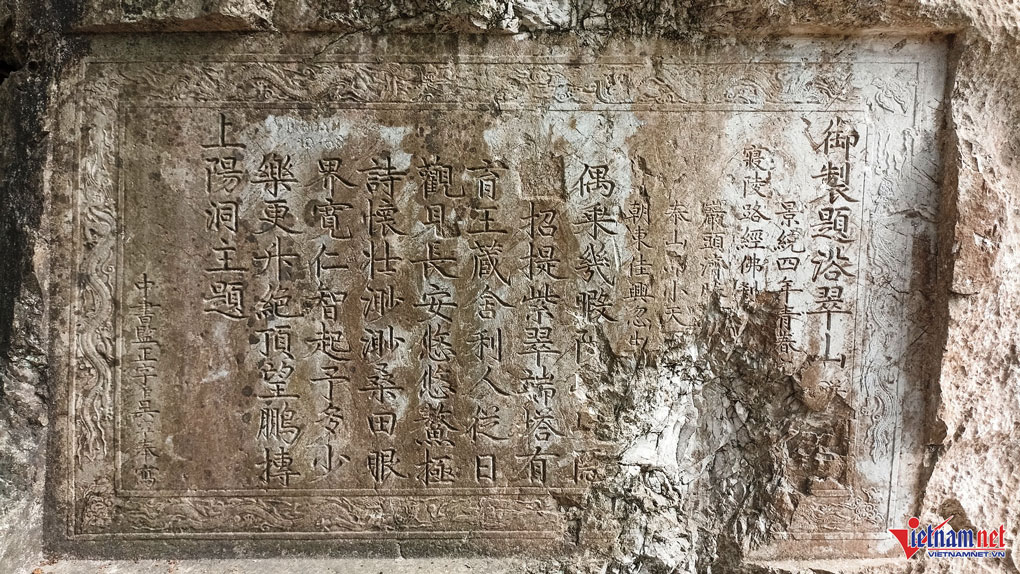 御製題浴翠山
景統四年青春
寢陵路經佛刹
巖頭清
泰山而小天
朝東佳興忽出
偶乗幾暇
招提紫翠端塔有
育王藏舍利人從日
觀見長安悠悠鰲極
詩懷壯渺渺桑田眼
界寬仁智起予多少
樂更升絶頂望鵬摶
上陽洞主題
中書監正字吳 寫
Vietnamnet
VIETNAMNET.VN